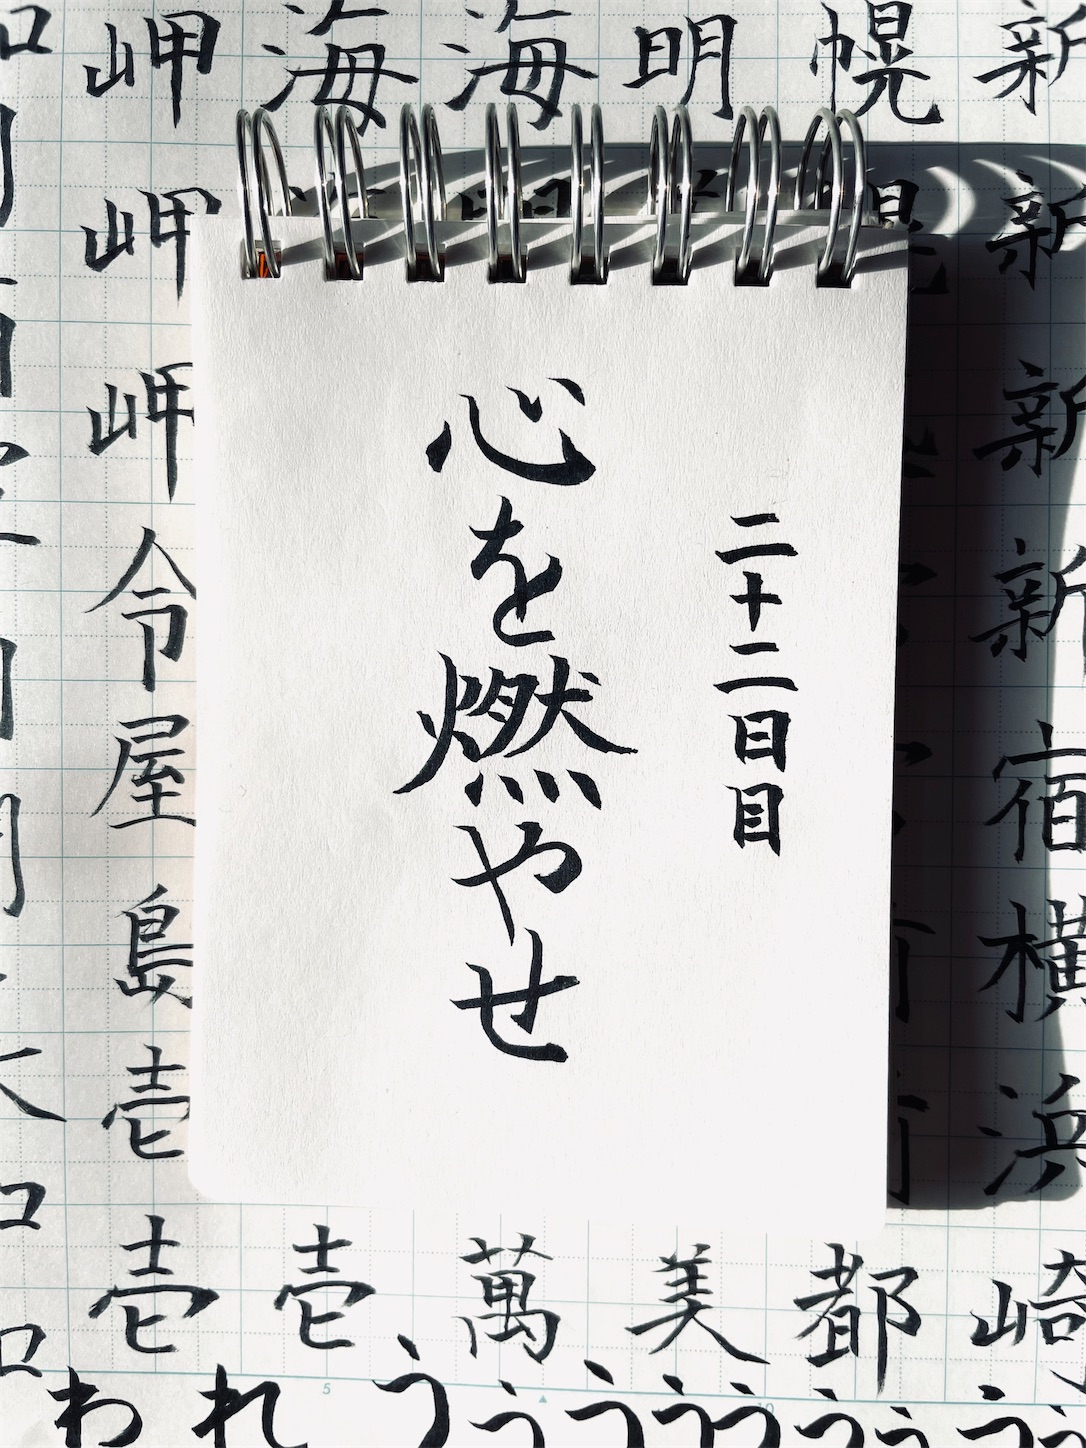 二十二日目
心を燃やせ
新新新新宿横浜
幌
明
海
海
岬岬岬令屋島壱壱
壱
萬
美
都
崎
われ